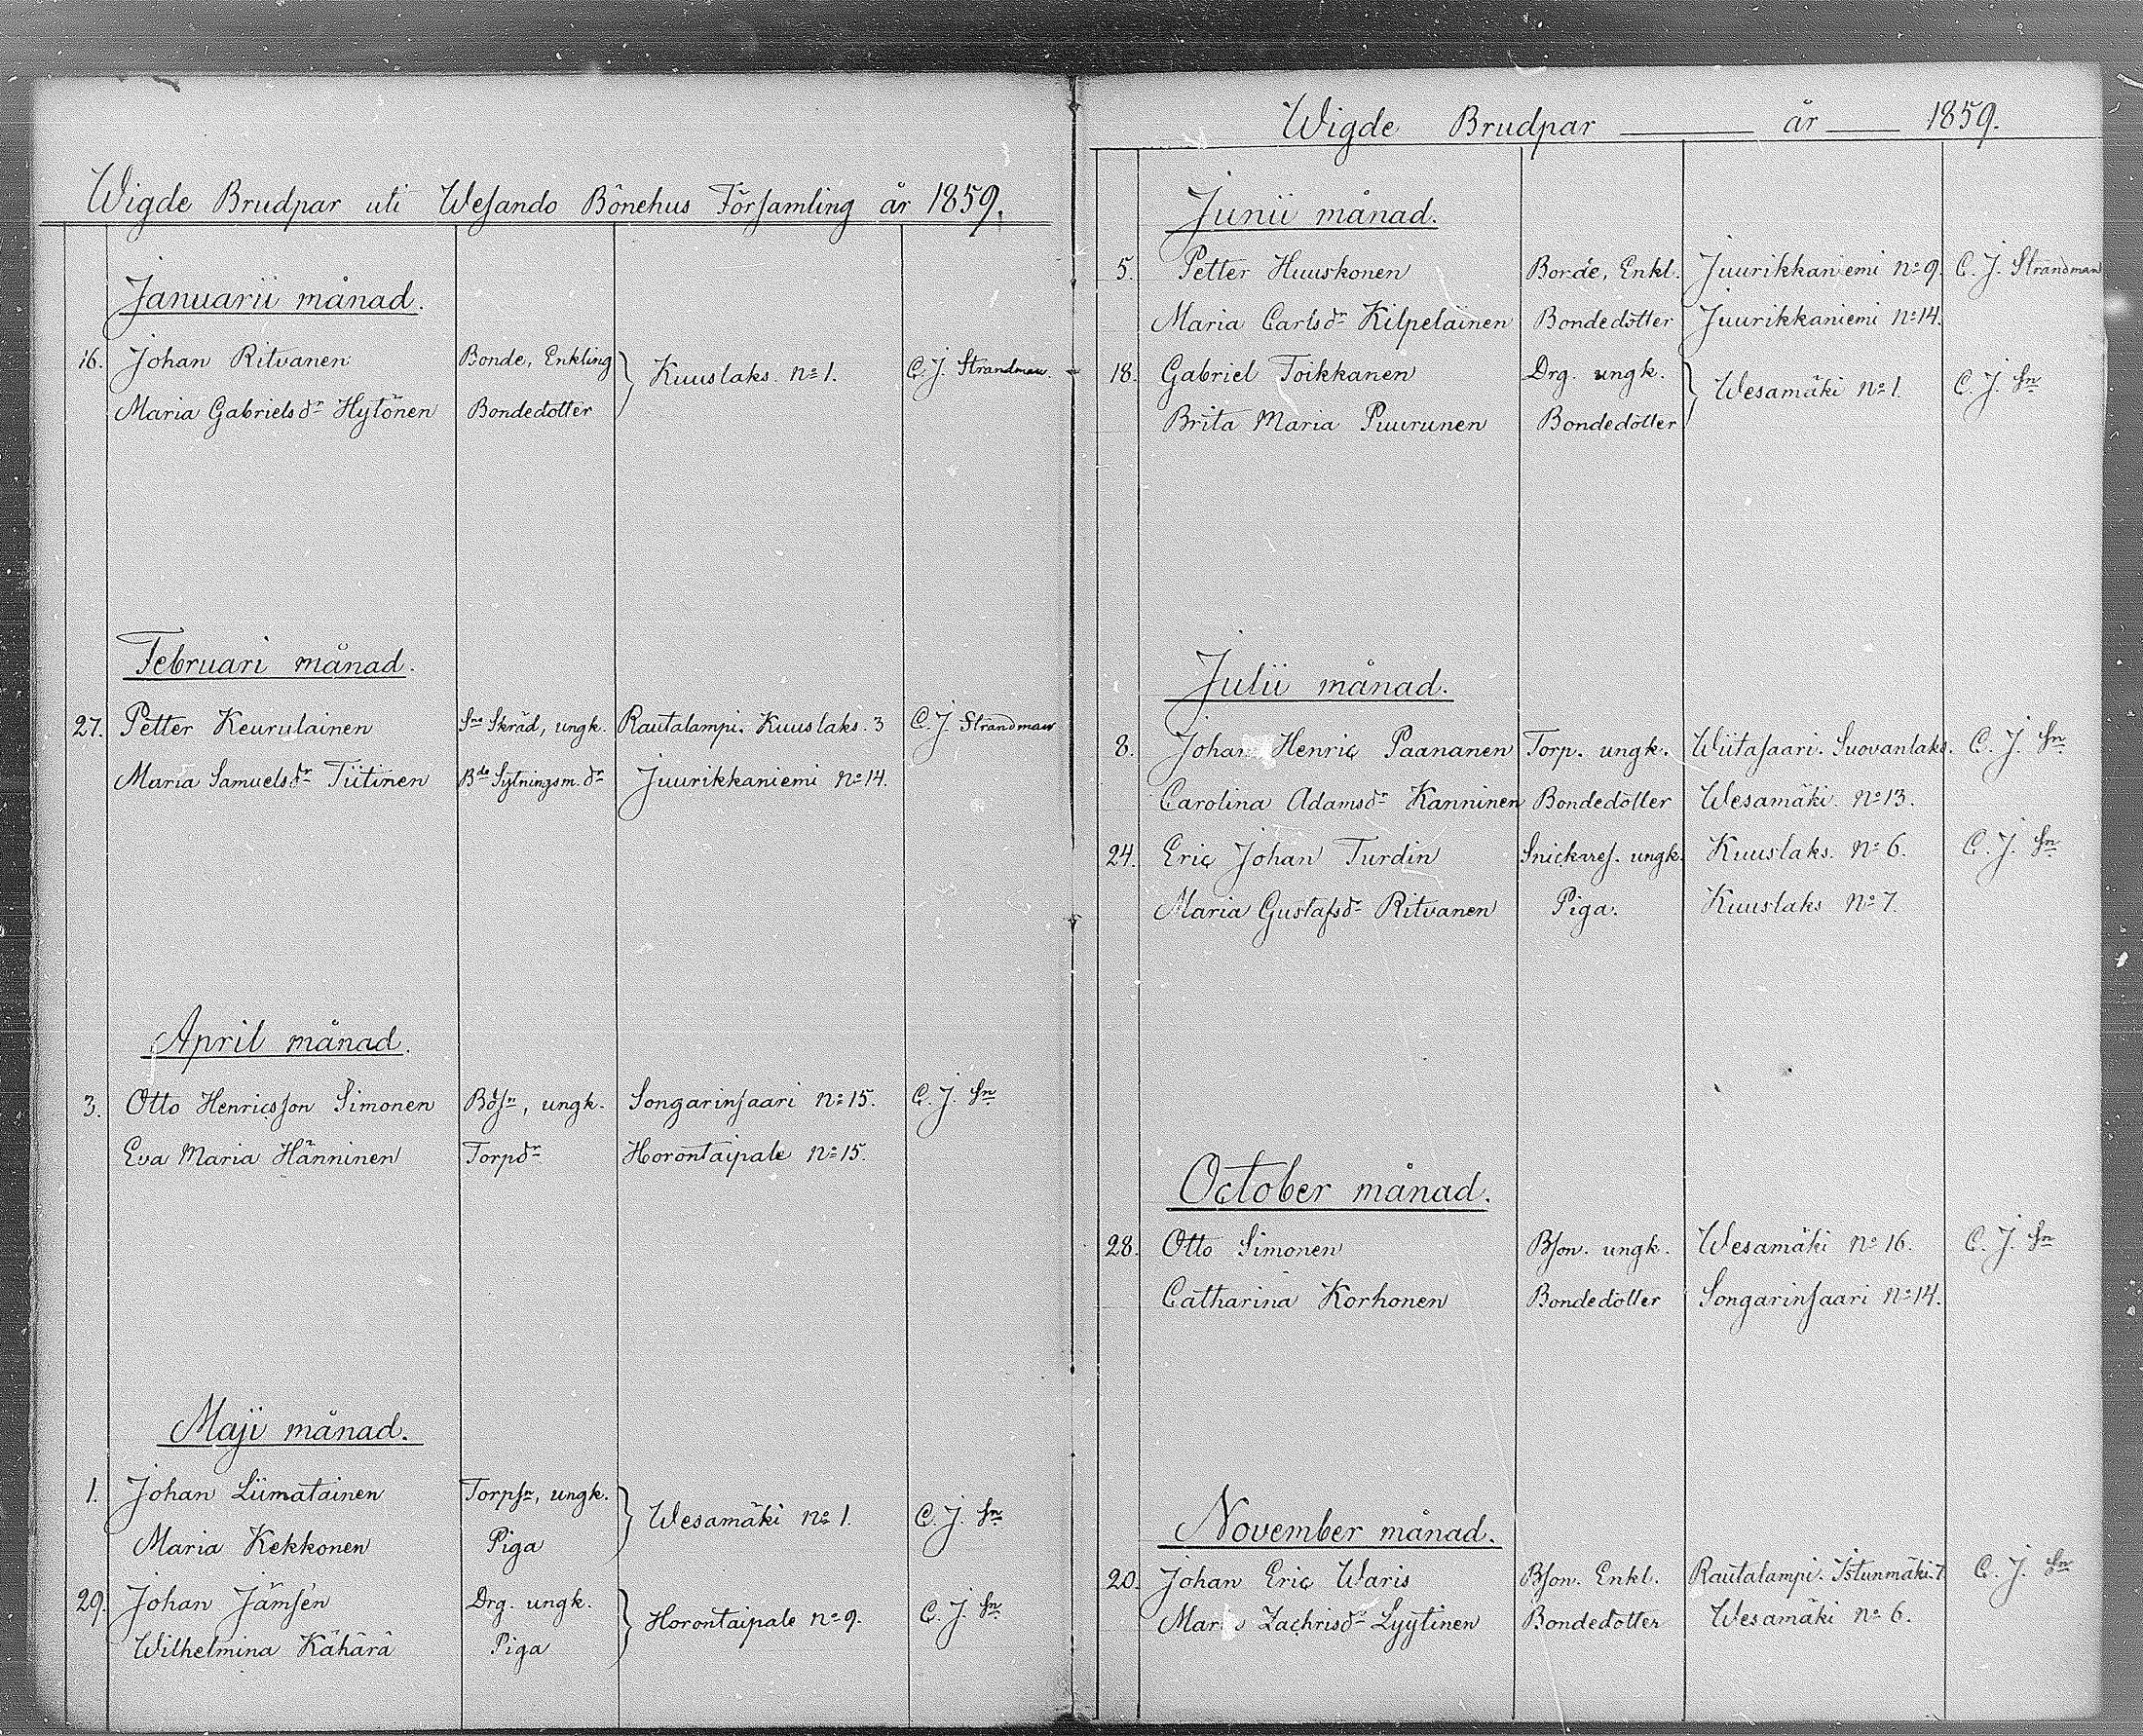 Wigde Brudpar uti Wesando Bönehus Församling år 1859.
Januarii månad.
16. Johan Ritvanen Bonde, Enkling Kuuslaks. No 1. C. J. Strandman.
Maria Gabrielsdr Hytönen Bondedotter
Februari månad.
27. Petter Keurulainen Sne Skräd, ungk. Rautalampi. Kuuslaks. 3 C. J. Strandman
Maria Samuelsdr Tiitinen Bde Sytningsm. dr Juurikkaniemi No 14.
April månad.
3. Otto Henricsson Simonen Bdsn, ungk. Songarinsaari No 15. C. J. Sn
Eva Maria Hänninen Torpdr Horontaipale No 15.
Maji månad.
1. Johan Liimatainen Torpsn, ungk. Wesamäki No 1. C. J. Sn
Maria Kekkonen Piga
29. Johan Jämsén Drg. ungk. Horontaipale No 9. C. J. Sn
Wilhelmina Kähärä Piga
Wigde Brudpar år 1859.
Junii månad.
5. Petter Huuskonen Bonde, Enkl. Juurikkaniemi No 9. C. J. Strandman
Maria Carlsdr Kilpeläinen Bondedotter Juurikkaniemi No 14.
18. Gabriel Toikkanen Drg. ungk. Wesamäki No 1. C. J. Sn
Brita Maria Puurunen Bondedotter
Julii månad.
8. Johan Henric Paananen Torp. ungk. Wiitasaari. Suovanlaks. C. J. Sn
Carolina Adamsdr Kanninen Bondedotter Wesamäki. No 13.
24. Eric Johan Turdin Snickares. ungk. Kuuslaks. No 6. C. J. Sn
Maria Gustafsdr Ritvanen Piga. Kuuslaks No 7.
October månad.
28. Otto Simonen Bson. ungk. Wesamäki No 16. C. J. Sn
Catharina Korhonen Bondedotter Songarinsaari No 14.
November månad.
20. Johan Eric Waris Bson. Enkl. Rautalampi. Istunmäki. 7 C. J. Sn
Maria Zachrisdr Lyytinen Bondedotter Wesamäki No 6.